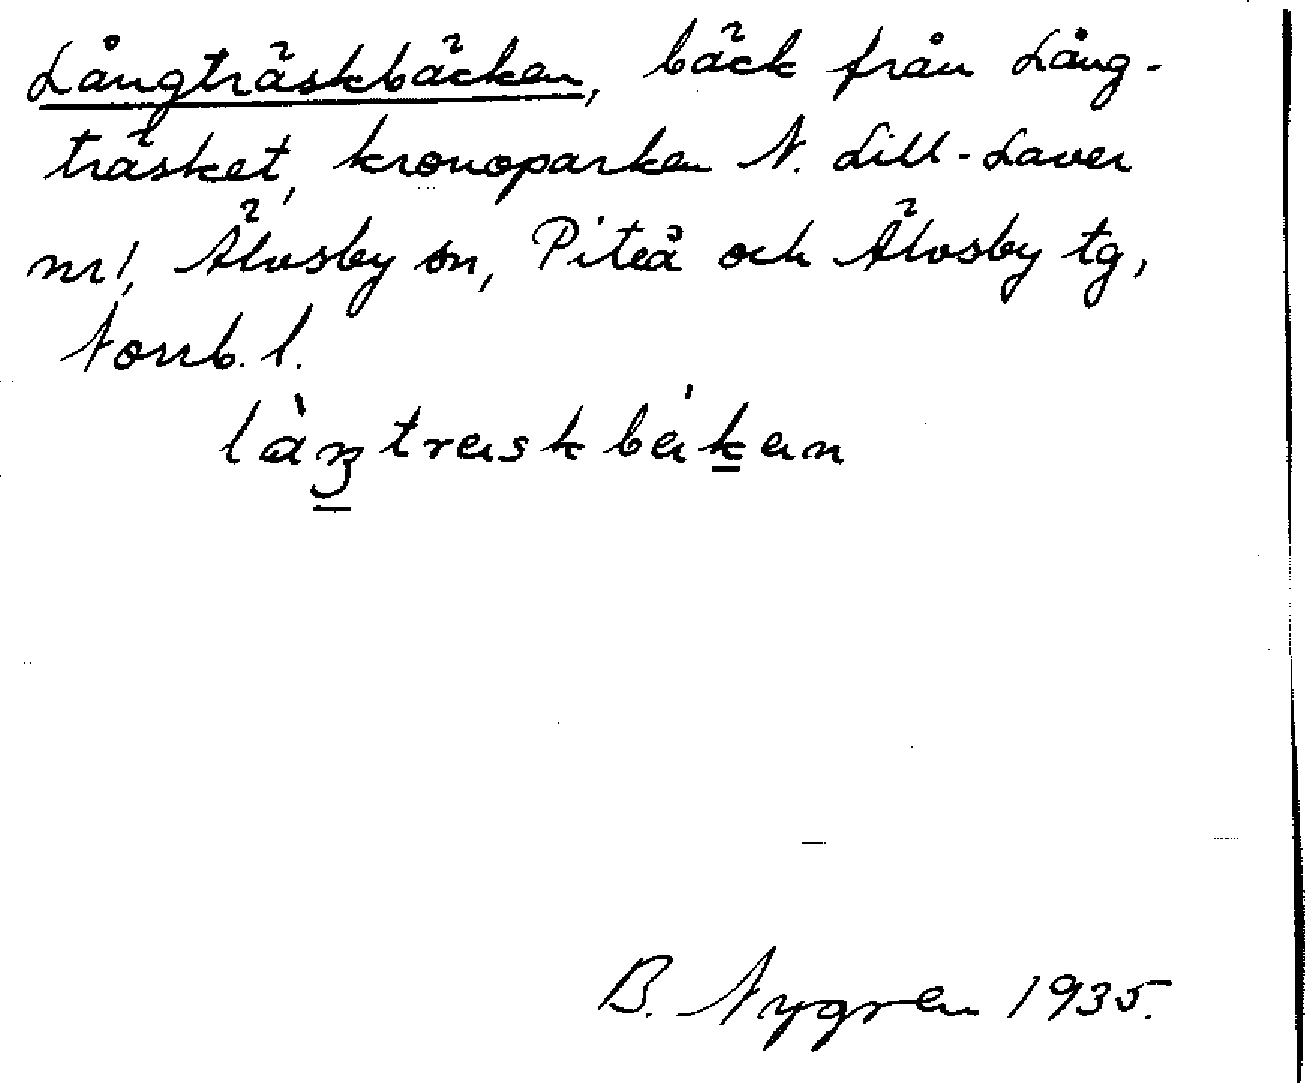 Långträskbäcken, bäck från Lång-
träsket, kronoparken N. Lill-Laver
nr 1, Älvsby sn, Piteå och Älvsby tg,
Norrb. l.
låŋtræskbækæn
B. Nygren 1935.